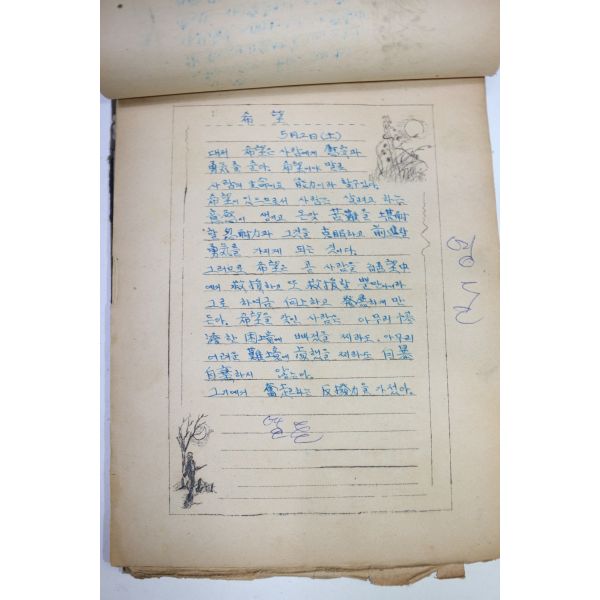 希望
5月2日(土)
대저 希望은 사람에게 慰安과
勇氣를 준다. 希望이야 말로
사람의 生命이고 能力이라 할수 있다.
希望이 있으므로서 사람은 살려고 하는
意慾이 생기고 온갖 苦難을 堪耐
할 忍耐力과 그것을 克服하고 前進할
勇氣를 가지게 되는 것이다.
그러므로 希望은 곧 사람을 絶望中
에서 救援하고 또 救援할 뿐만아니라
그로 하여금 向上하고 發展하게 만
든다. 希望을 갖인 사람은 아무리 悽
慘한 困境에 빠졌을 찌라도, 아무리
어려운 難境에 處했을 찌라도 自暴
自棄하지 않는다.
그에게서 奮起하는 反撥力을 가졌다.